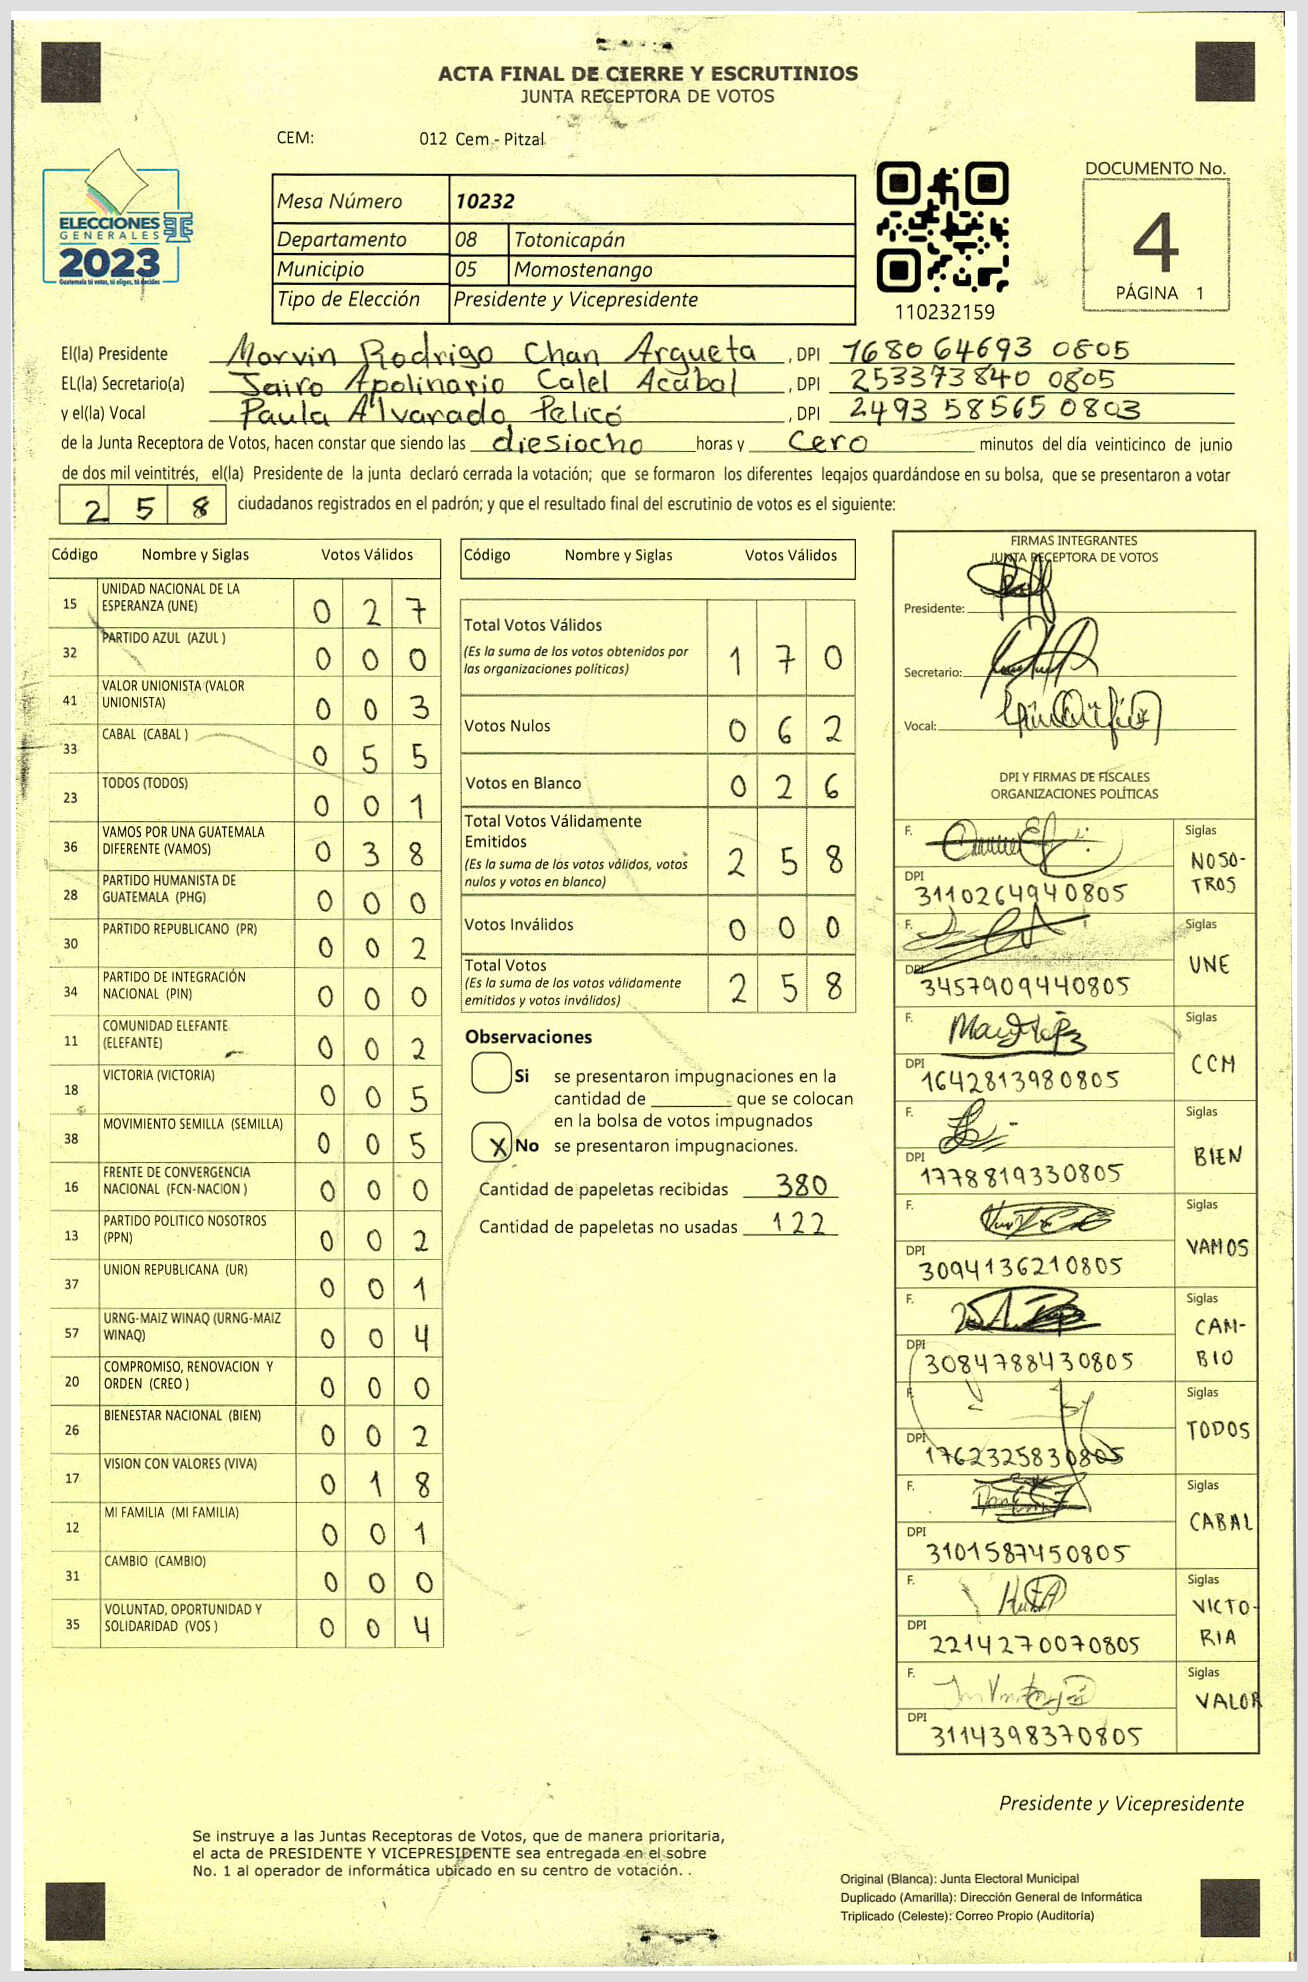 ACTA FINAL DE CIERRE Y ESCRUTINIOS
JUNTA RECEPTORA DE VOTOS
CEM: 012 Cem - Pitzal
ELECCIONES
GENERALES
2023
Guatemala tú votas, tú eliges, tú decides
Mesa Número 10232
Departamento 08 Totonicapán
Municipio 05 Momostenango
Tipo de Elección Presidente y Vicepresidente
110232159
DOCUMENTO No.
4
PÁGINA 1
El(la) Presidente Marvin Rodrigo Chan Argueta , DPI 1680 64693 0805
EL(la) Secretario(a) Jairo Apolinario Calel Acabal , DPI 253373840 0805
y el(la) Vocal Paula Alvarado Pelicó , DPI 2493 58565 0803
de la Junta Receptora de Votos, hacen constar que siendo las diesiocho horas y cero minutos del día veinticinco de junio
de dos mil veintitrés, el(la) Presidente de la junta declaró cerrada la votación; que se formaron los diferentes legajos guardándose en su bolsa, que se presentaron a votar
2 5 8 ciudadanos registrados en el padrón; y que el resultado final del escrutinio de votos es el siguiente:
Código Nombre y Siglas Votos Válidos
15 UNIDAD NACIONAL DE LA
ESPERANZA (UNE) 0 2 7
32 PARTIDO AZUL (AZUL ) 0 0 0
41 VALOR UNIONISTA (VALOR
UNIONISTA) 0 0 3
33 CABAL (CABAL ) 0 5 5
23 TODOS (TODOS) 0 0 1
36 VAMOS POR UNA GUATEMALA
DIFERENTE (VAMOS) 0 3 8
28 PARTIDO HUMANISTA DE
GUATEMALA (PHG) 0 0 0
30 PARTIDO REPUBLICANO (PR) 0 0 2
34 PARTIDO DE INTEGRACIÓN
NACIONAL (PIN) 0 0 0
11 COMUNIDAD ELEFANTE
(ELEFANTE) 0 0 2
18 VICTORIA (VICTORIA) 0 0 5
38 MOVIMIENTO SEMILLA (SEMILLA) 0 0 5
16 FRENTE DE CONVERGENCIA
NACIONAL (FCN-NACION ) 0 0 0
13 PARTIDO POLITICO NOSOTROS
(PPN) 0 0 2
37 UNION REPUBLICANA (UR) 0 0 1
57 URNG-MAIZ WINAQ (URNG-MAIZ
WINAQ) 0 0 4
20 COMPROMISO, RENOVACION Y
ORDEN (CREO ) 0 0 0
26 BIENESTAR NACIONAL (BIEN) 0 0 2
17 VISION CON VALORES (VIVA) 0 1 8
12 MI FAMILIA (MI FAMILIA) 0 0 1
31 CAMBIO (CAMBIO) 0 0 0
35 VOLUNTAD, OPORTUNIDAD Y
SOLIDARIDAD (VOS ) 0 0 4
Código Nombre y Siglas Votos Válidos
Total Votos Válidos
(Es la suma de los votos obtenidos por
las organizaciones políticas) 1 7 0
Votos Nulos 0 6 2
Votos en Blanco 0 2 6
Total Votos Válidamente
Emitidos
(Es la suma de los votos válidos, votos
nulos y votos en blanco) 2 5 8
Votos Inválidos 0 0 0
Total Votos
(Es la suma de los votos válidamente
emitidos y votos inválidos) 2 5 8
Observaciones
Si se presentaron impugnaciones en la
cantidad de ________ que se colocan
en la bolsa de votos impugnados
X No se presentaron impugnaciones.
Cantidad de papeletas recibidas 380
Cantidad de papeletas no usadas 122
FIRMAS INTEGRANTES
JUNTA RECEPTORA DE VOTOS
Presidente:
Secretario:
Vocal:
DPI Y FIRMAS DE FISCALES
ORGANIZACIONES POLÍTICAS
F. Siglas
NOSO-
TROS
DPI
3110264940805
F. Siglas
UNE
DPI
3457909440805
F. Siglas
CCM
DPI
1642813980805
F. Siglas
BIEN
DPI
1778819330805
F. Siglas
VAMOS
DPI
3094136210805
F. Siglas
CAM-
BIO
DPI
3084788430805
F. Siglas
TODOS
DPI
1762325830805
F. Siglas
CABAL
DPI
3101587450805
F. Siglas
VICTO-
RIA
DPI
2214270070805
F. Siglas
VALOR
DPI
3114398370805
Presidente y Vicepresidente
Se instruye a las Juntas Receptoras de Votos, que de manera prioritaria,
el acta de PRESIDENTE Y VICEPRESIDENTE sea entregada en el sobre
No. 1 al operador de informática ubicado en su centro de votación. .
Original (Blanca): Junta Electoral Municipal
Duplicado (Amarilla): Dirección General de Informática
Triplicado (Celeste): Correo Propio (Auditoría)